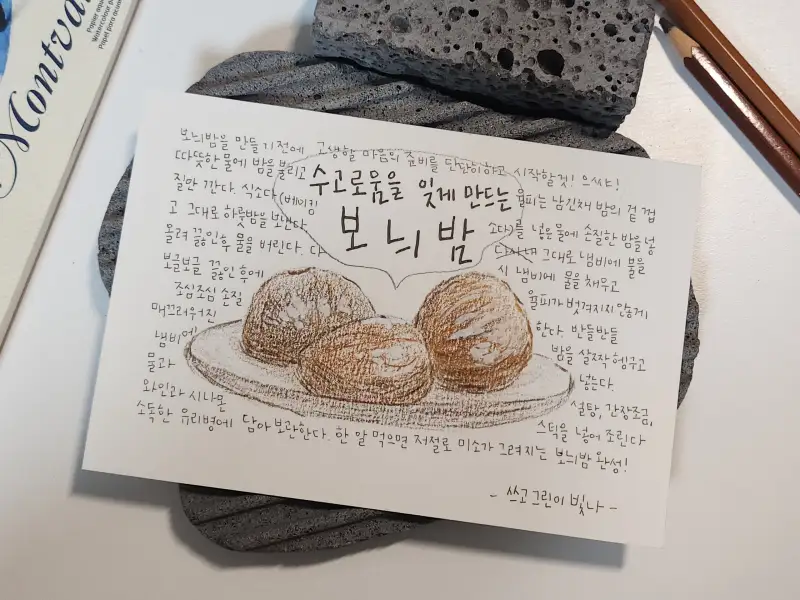 Montva
Papier aqua
Watercolour p
Papel para acuar
보늬밤을 만들기 전에 고생할 마음의 준비를 단단히하고 시작할것! 으쌰!
수고로움을 잊게 만드는
보늬밤
따뜻한 물에 밤을 불리고 율피는 남긴채 밤의 겉 껍
질만 깐다. 식소다(베이킹 소다)를 넣은물에 손질한 밤을 넣
고 그대로 하룻밤을 보낸다. 그대로 냄비에 불을
올려 끓인후 물을 버린다. 다시 냄비에 물을 채우고
보글보글 끓인 후에 율피가 벗겨지지않게
조심조심 손질 한다. 반들반들
매끄러워진 밤을 살짝 헹구고
냄비에 넣는다.
물과 설탕, 간장조금,
와인과 시나몬 스틱을 넣어 조린다
소독한 유리병에 담아 보관한다. 한 알 먹으면 저절로 미소가 그려지는 보늬밤 완성!
- 쓰고그린이 빛나 -